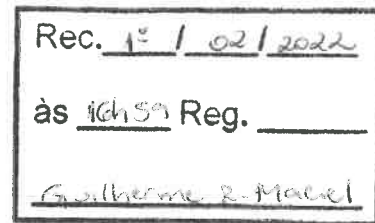 Rec. 1º / 02 / 2022
às 16h59 Reg.
Guilherme R. Maciel